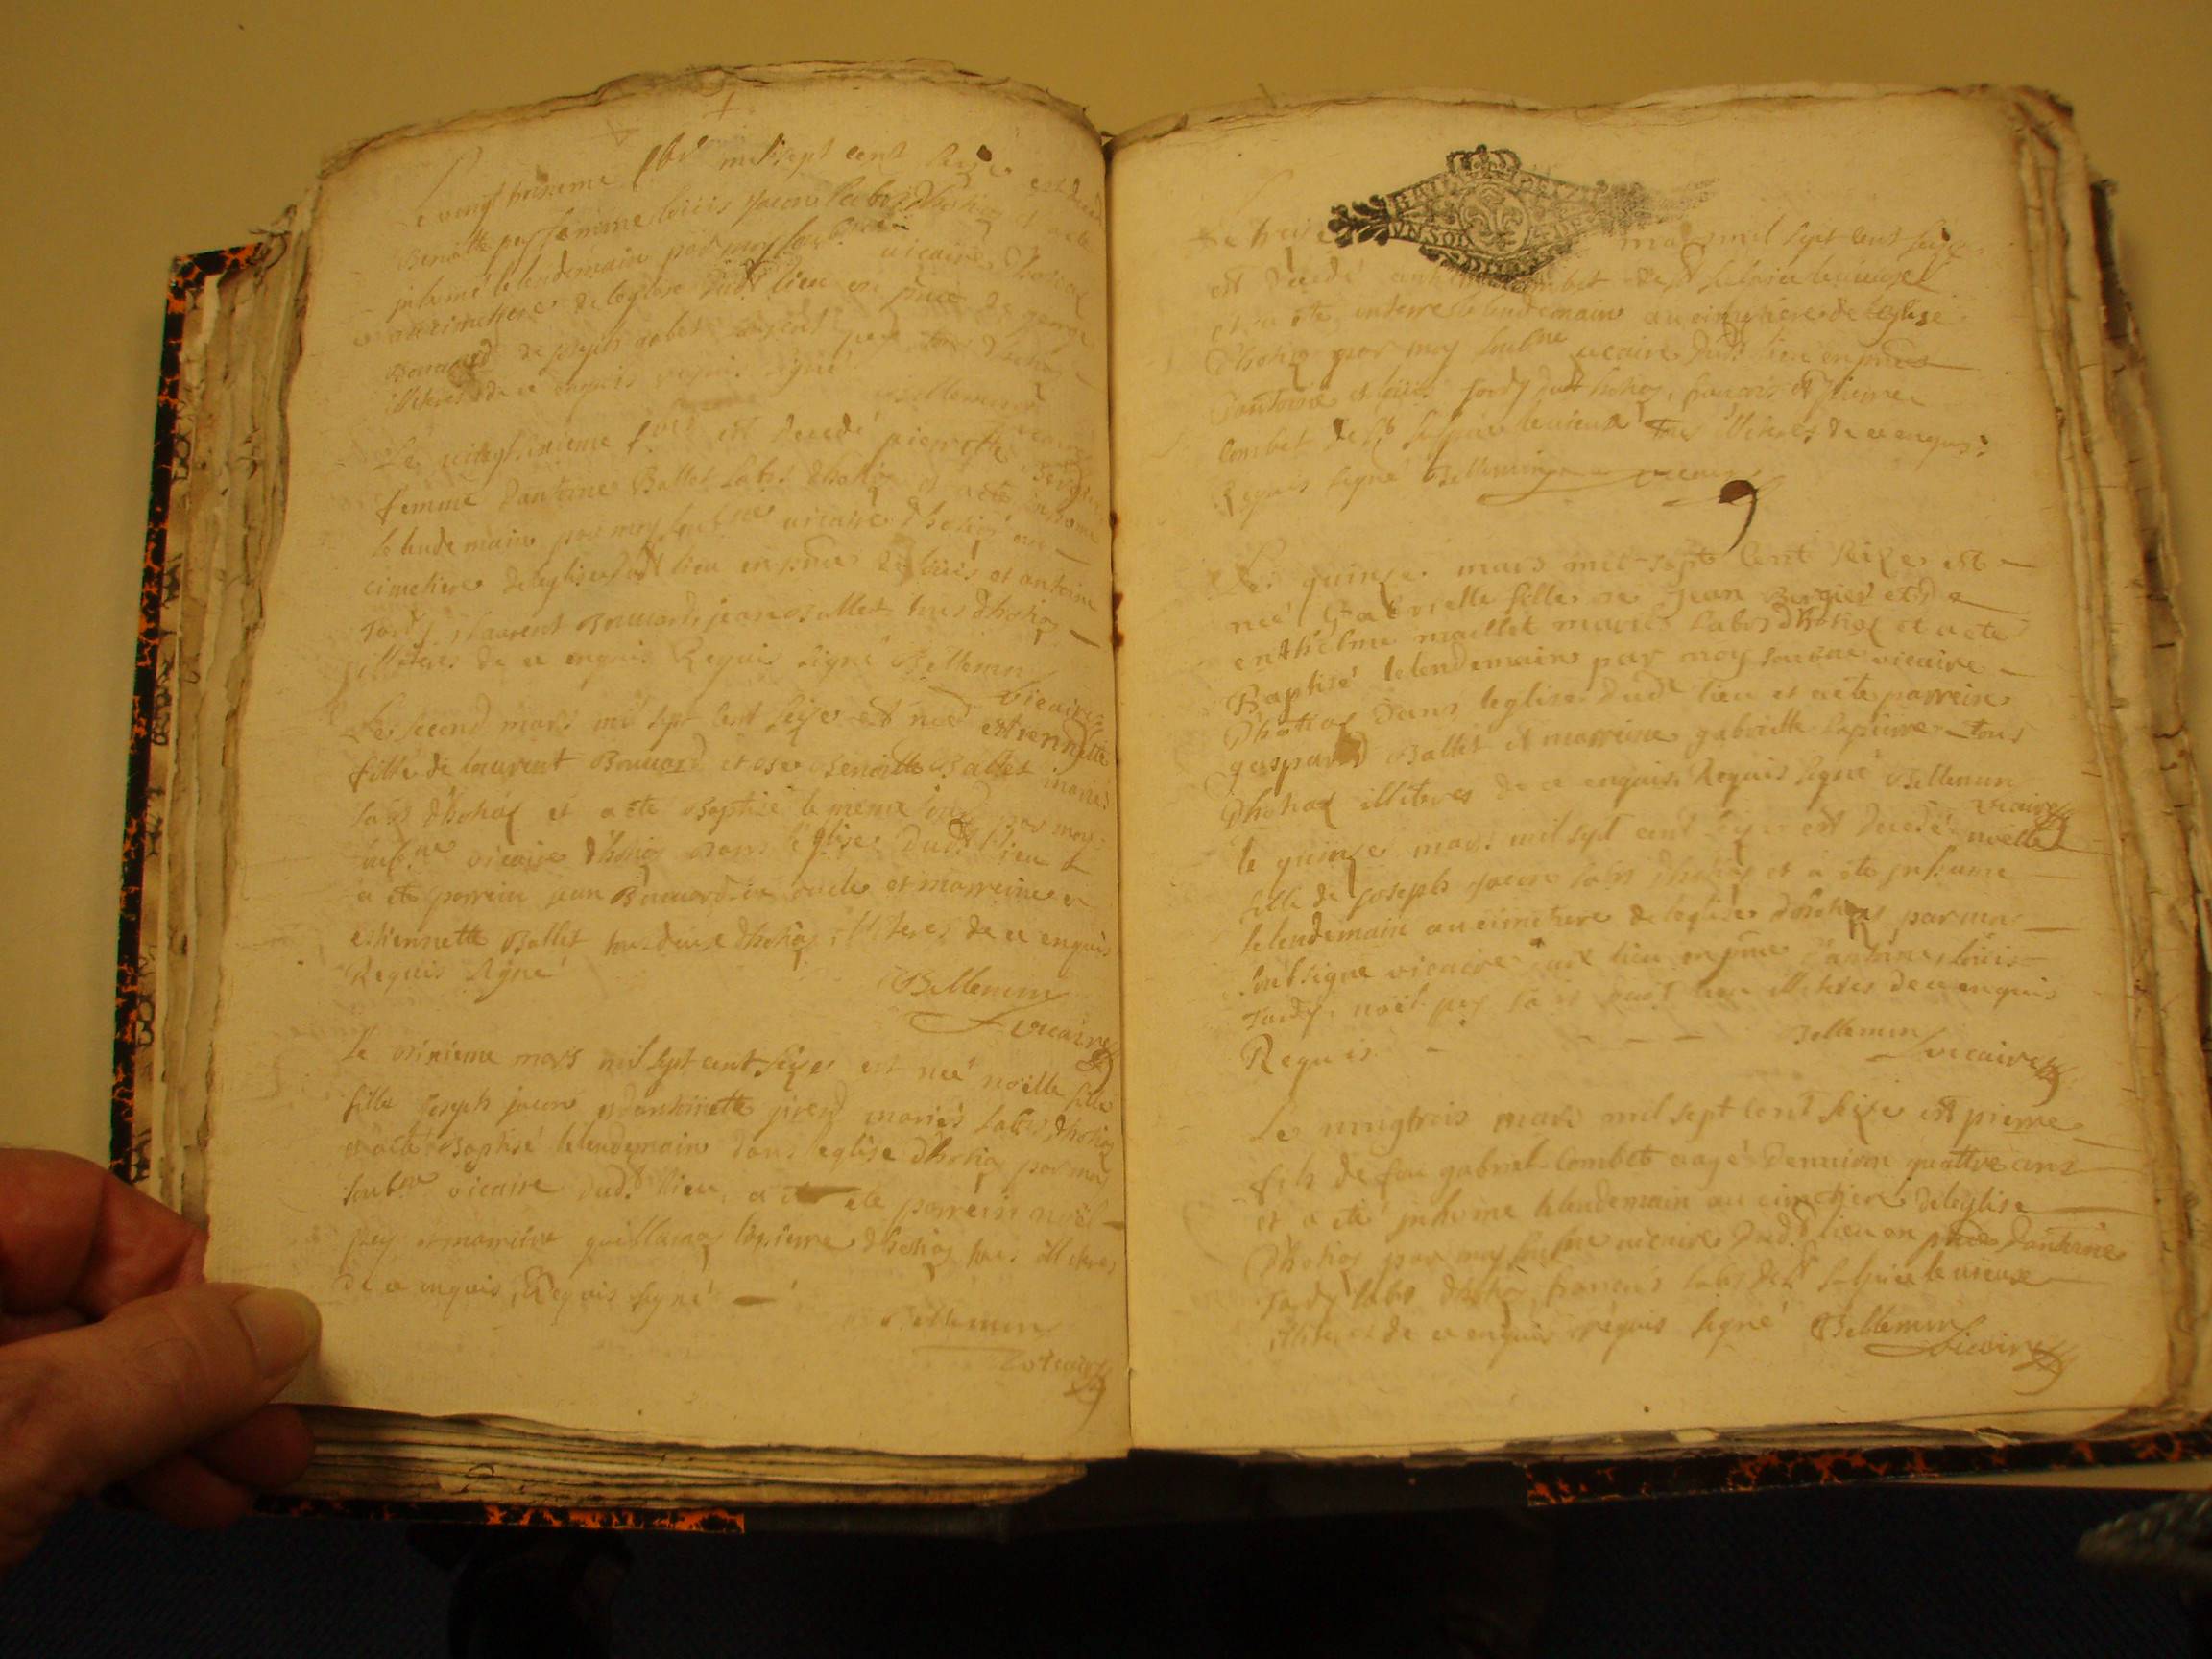 Le vingt troisieme fbr mil sept cent seize est decede
Benoitte pey femme louis Jacon labor dhotiaz et a ete
inhumé le lendemain par moy soubne vicaire dhotiaz
au cimettiere de leglise dudt lieu en pnce de
Bouvard de joseph tous dhotiaz
illiteres de ce enquis requis signé
Bellemin
vicaire
Le fbr est decedé pierrette
femme dantoine Ballet labr dhotiaz et a eté inhumé
le lendemain par moy soubne vicaire dhotiaz au
cimetiere de leglise dudt lieu en pnce de louis et antoine
Tardy, laurent Bouvard, jean Ballet tous dhotiaz
illiteres de ce enquis Requis signé Bellemin
vicaire
Le second mars mil sept cent seize est neé estiennette
fille de laurent Bouvard et de Benoitte Ballet mariés
labrs dhotiaz et a ete Baptisé le meme jour par moy
soubne vicaire dhotiaz dans leglise dudt lieu et
a ete parrein jean Bouvard oncle et marreine
estiennette Ballet tous deux dhotiaz illiteres de ce enquis
Requis signé
Bellemin
vicaire
Le onzieme mars mil sept cent seize est neé noëlle fille
fille joseph jacon et dantoinette mariés labrs dhotiaz
et a eté Baptisé le lendemain dans leglise dhotiaz par moy
soubne vicaire dudt lieu, a ete parrein noël
pey et marreine lapierre dhotiaz tous illiteres
de ce enquis, Requis signé
Bellemin
vicaire
UN SOL
Le treize mars mil sept cent seize
est decedé combet de St sulpice le vieux
et a ete enterré le lendemain au cimetiere de leglise
dhotiaz par moy soubne vicaire dudt lieu en pnce
dantoine et louis Tardy dudt hotiaz, francois et pierre
Combet de St sulpice le vieux tous illiteres de ce enquis
Requis signé Bellemin vicaire
Le quinze mars mil sept cent seize est
neé Gabrielle fille de jean Bergier et de
enthelme maillet mariés labrs dhotiaz et a ete
Baptisé le lendemain par moy soubne vicaire
dhotiaz dans leglise dudt lieu et a ete parrein
gaspard Ballet et marreine gabrielle lapierre tous
dhotiaz illiteres de ce enquis Requis signé Bellemin
vicaire
le quinze mars mil sept cent seize est decedé noelle
fille de joseph jacon labr dhotiaz et a ete inhumé
le lendemain au cimetiere de leglise dhotiaz par moy
soubsigné vicaire dudt lieu en pnce dantoine, louis
Tardy, noël pey illiteres de ce enquis
Requis
Bellemin
vicaire
Le vingtrois mars mil sept cent seize est pierre
fils de feu gabriel Combet aagé denviron quattre ans
et a eté inhumé le lendemain au cimetiere de leglise
dhotiaz par moy soubne vicaire dudt lieu en pnce dantoine
Tardy labr dhotiaz, francois labr de St sulpice le vieux
illiteres de ce enquis requis signé Bellemin
vicaire